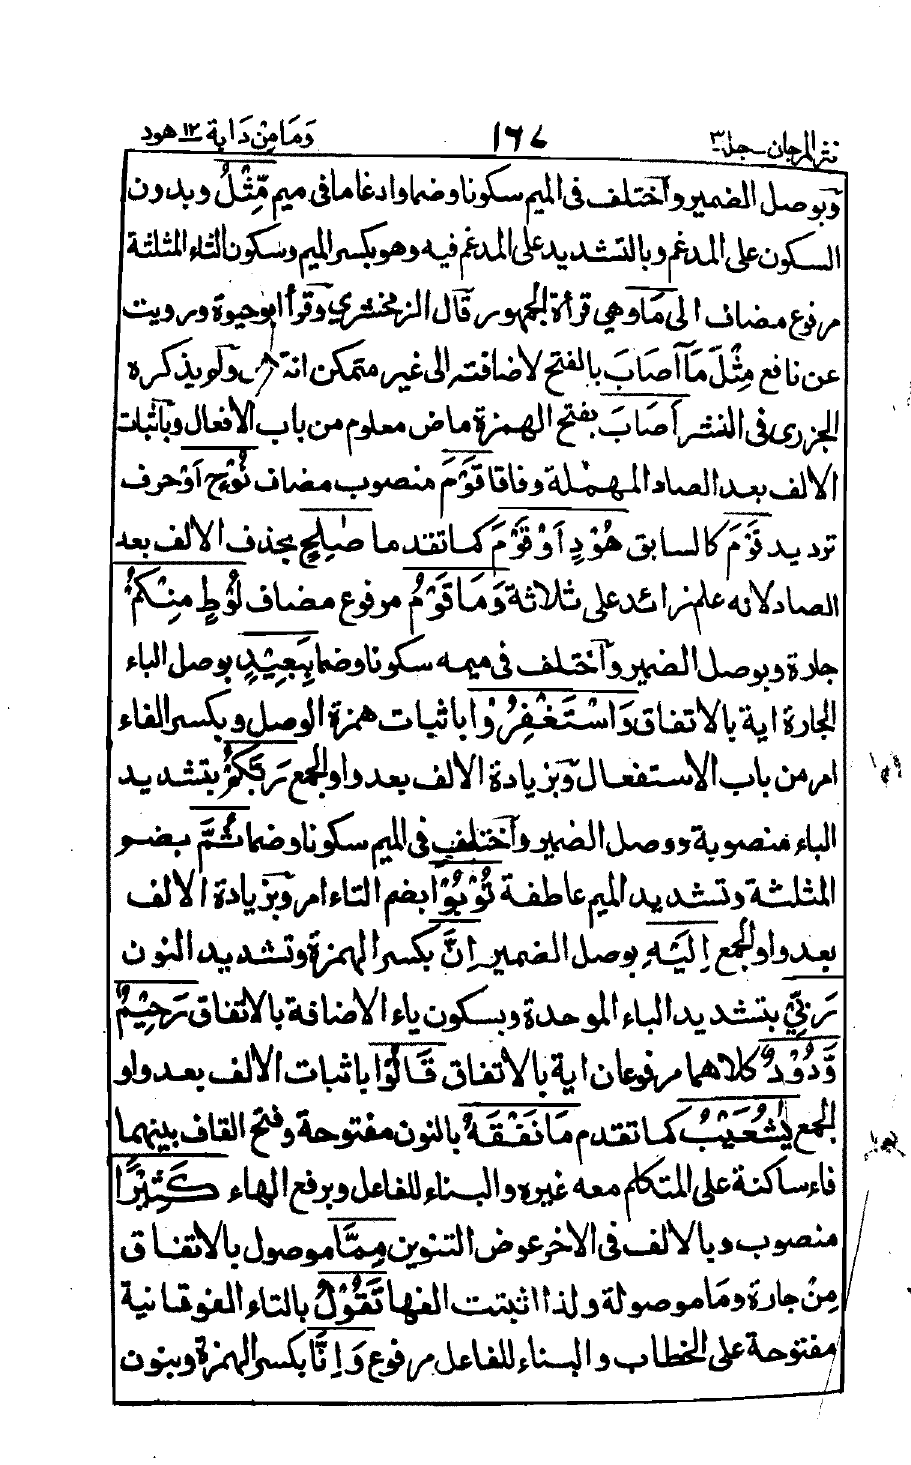 نثر المرجان ــ جلد ٣ ١٦٧ وَمَا مِنْ دَابة ١٢ هود
وبوصل الضمير واختلف فى الميم سكونا وضما وادغامافى ميم مِّثْلُ وبدون
السكون على المدغم وبالتشديد على المدغم فيه وهو بكسر الميم وسكون الثاء المثلثة
مرفوع مضاف الى مَا وهي قرأة الجمهور قال الزمخشري وقرأ ابوحيوة ورويت
عن نافع مِثْلَ مَآ أَصَابَ بالفتح لاضافته الى غير متمكن انتهى ولم يذكره
الجزرى فى النشر أَصَابَ بفتح الهمزة ماض معلوم من باب الافعال وباثبات
الالف بعد الصاد المهملة وفاقا قَوْمَ منصوب مضاف نُوْحٍ اَوْ حرف
ترديد قَوْمَ كالسابق هُوْدٍ اَوْ قَوْمَ كما تقدما صٰلِحٍ بحذف الالف بعد
الصاد لانه علم زائد على ثلاثة وَمَا قَوْمُ مرفوع مضاف لُوْطٍ مِنْكُمْ
جارة وبوصل الضمير واختلف فى ميمه سكونا وضما بِبَعِيْدٍ بوصل الباء
الجارة اية بالاتفاق وَاسْتَغْفِرُوْا باثبات همزة الوصل وبكسر الفاء
امر من باب الاستفعال وبزيادة الالف بعد واو الجمع رَبَّكُمْ بتشديد
الباء منصوبة ووصل الضمير واختلف فى الميم سكونا وضما ثُمَّ بضم
المثلثة وتشديد الميم عاطفة تُوْبُوْا بضم التاء امر وبزيادة الالف
بعد واو الجمع اِلَيْهِ بوصل الضمير اِنَّ بكسر الهمزة وتشديد النون
رَبِّيْ بتشديد الباء الموحدة وبسكون ياء الاضافة بالاتفاق رَحِيْمٌ
وَّدُوْدٌ كلاهما مرفوعان اية بالاتفاق قَالُوْا باثبات الالف بعد واو
الجمع يٰشُعَيْبُ كما تقدم مَا نَفْقَهُ بالنون مفتوحة وفتح القاف بينهما
فاء ساكنة على المتكلم معه غيره والبناء للفاعل وبرفع الهاء كَثِيْرًا
منصوب وبالالف فى الاخر عوض التنوين مِمَّا موصول بالاتفاق
مِنْ جارة ومَا موصولة ولذا اثبتت الفها تَقُوْلُ بالتاء الفوقانية
مفتوحة على الخطاب والبناء للفاعل مرفوع وَاِنَّا بكسر الهمزة وبنون